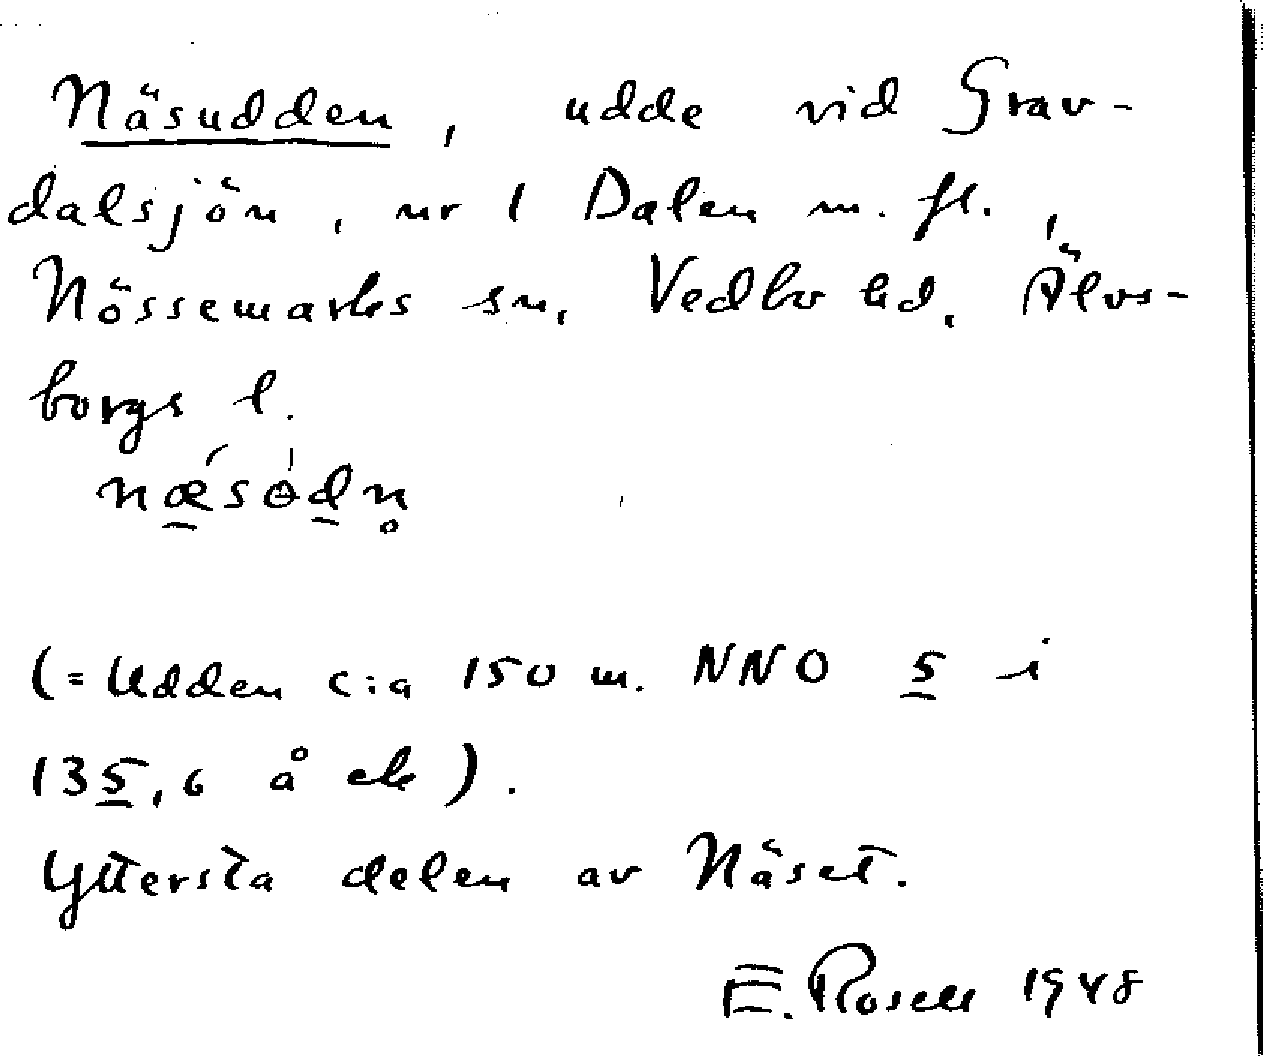 Näsudden, udde vid Grav-
dalsjön, nr 1 Dalen m. fl.,
Nössemarks sn, Vedbo hd, Älvs-
borgs l.
nǽ̱sɵ̍ḏn̥
(= Udden c:a 150 m. NNO 5 i
135,6 å ek).
Yttersta delen av Näset.
E. Rosell 1948